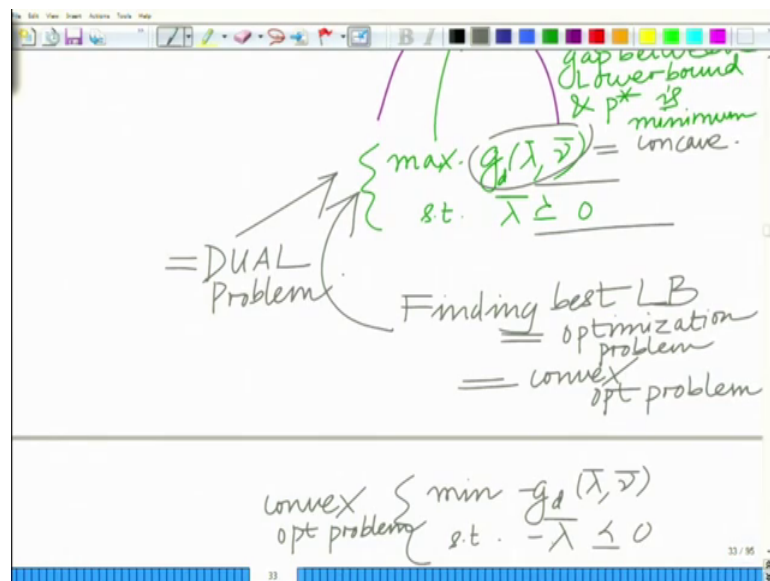 File Edit View Insert Actions Tools Help
B I
gap between
Lowerbound
& p* is
minimum
max. g_d(λ̄, ν̄) = concave.
s.t. λ̄ ⪰ 0
= DUAL
Problem.
Finding best LB
= optimization
problem
= convex
opt problem
convex
opt problem
min -g_d(λ̄, ν̄)
s.t. -λ̄ ⪯ 0
33 / 95
33